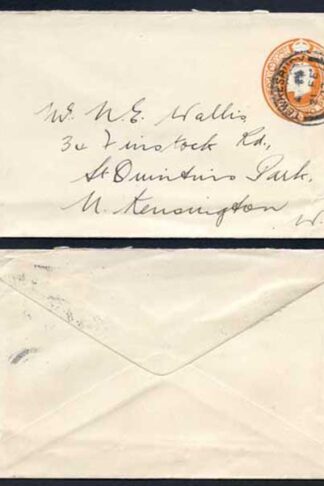 W. N. E. Wallis,
34 Finstock Rd.,
St Quintins Park,
N. Kensington
W.